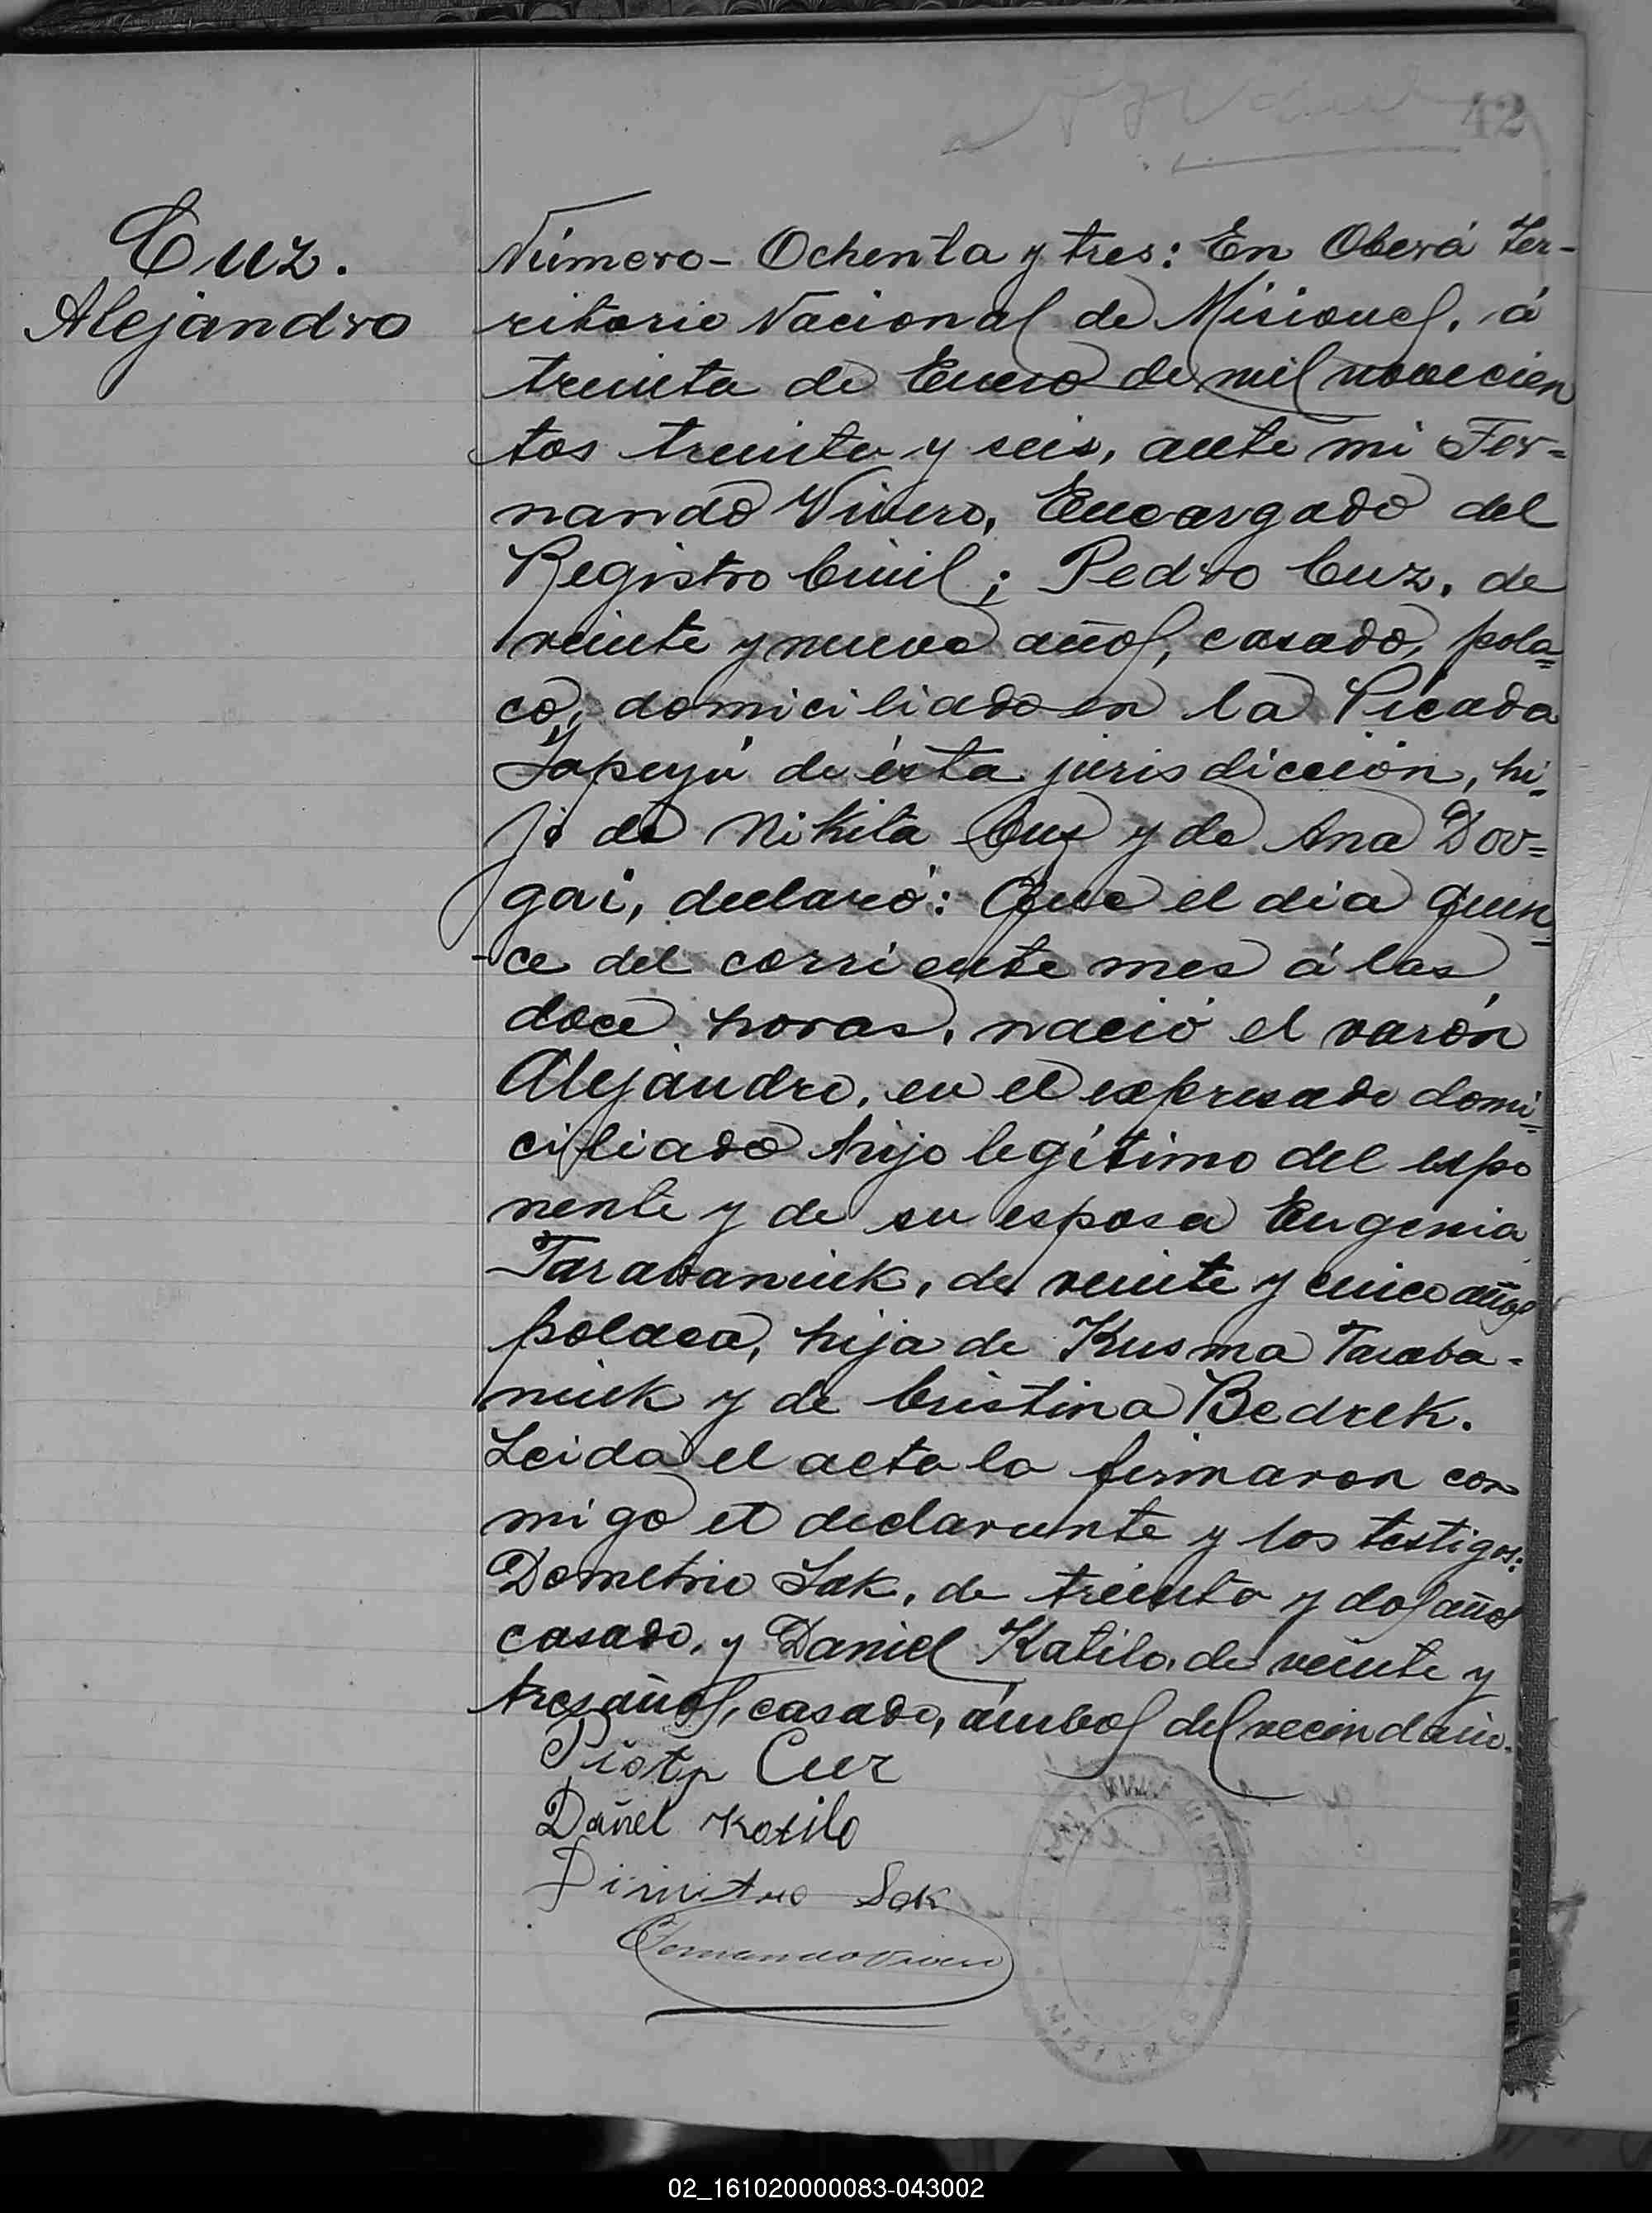 42
Cuz.
Alejandro
Número - Ochenta y tres: En Oberá Ter-
ritorio Nacional de Misiones, á
treinta de Enero de mil novecien
tos treinta y seis, ante mi Fer=
nando Vivero, Encargado del
Registro Civil; Pedro Cuz, de
veinte y nueve años, casado, pola=
co, domiciliado en la Picada
Yapeyú de ésta jurisdicción, hi=
jo de Nikita Cuz y de Ana Dov=
gai, declaró: Que el día quin=
ce del corriente mes á las
doce horas, nació el varón
Alejandro, en el expresado domi=
ciliado hijo legítimo del expo
nente y de su esposa Eugenia
Tarabaniuk, de veinte y cinco años
polaca, hija de Kusma Taraba-
niuk y de Cristina Bedrek.
Leida el acta la firmaron con
migo el declarante y los testigos:
Demetrio Sak, de treinta y dos años
casado, y Daniel Katilo, de veinte y
tres años, casado, ámbos del vecindario.
Piotr Cuz
Dañel Kotilo
Dimitro Sak
Fernando Vivero
02_161020000083-043002